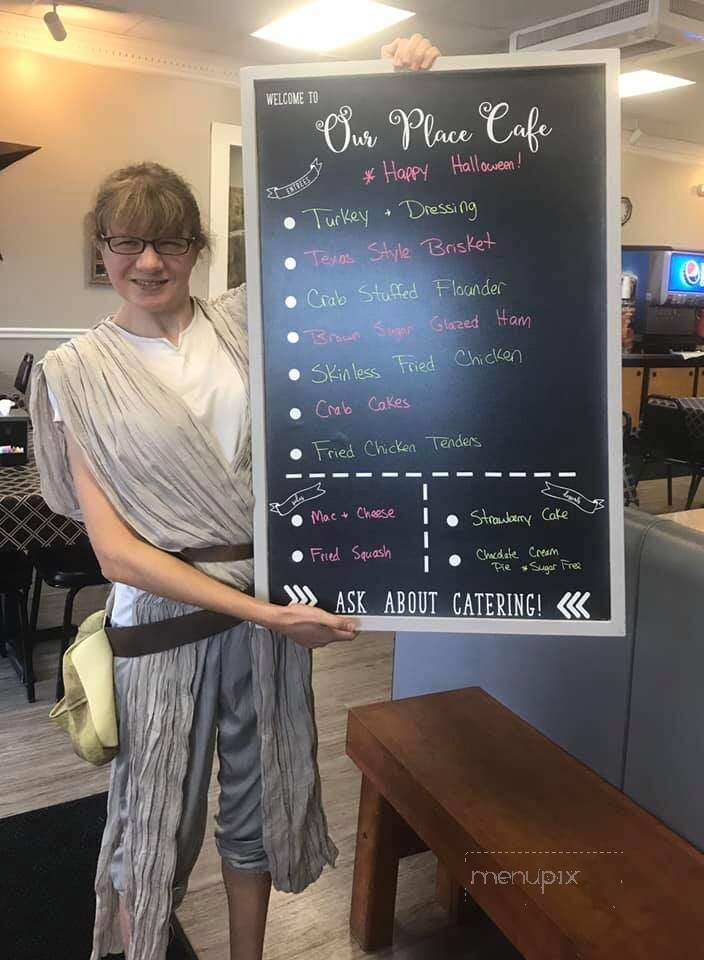 WELCOME TO
Our Place Cafe
* Happy Halloween!
ENTREES
Turkey + Dressing
Texas Style Brisket
Crab Stuffed Flounder
Brown Sugar Glazed Ham
Skinless Fried Chicken
Crab Cakes
Fried Chicken Tenders
sides
Mac + Cheese
Fried Squash
desserts
Strawberry Cake
Chocolate Cream
Pie * Sugar Free
ASK ABOUT CATERING!
pepsi
menupix